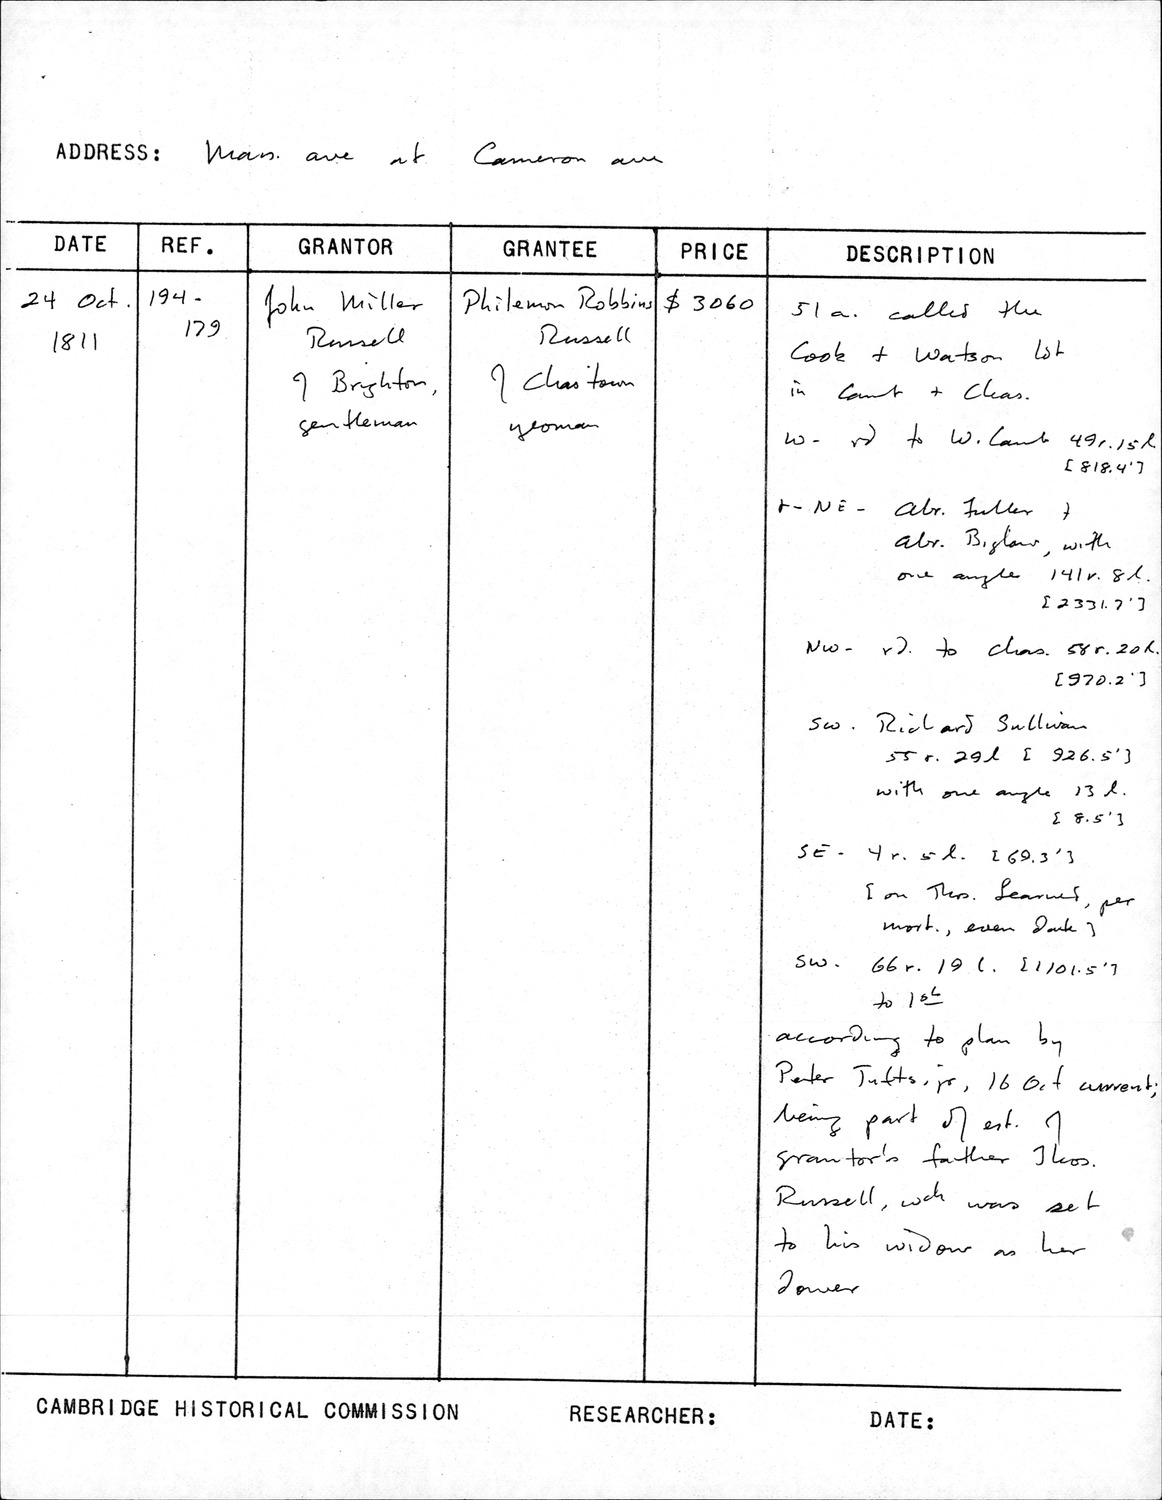 ADDRESS: Mass. ave at Cameron ave
DATE REF. GRANTOR GRANTEE PRICE DESCRIPTION
24 Oct.
1811
194-
179
John Miller
Russell
of Brighton,
gentleman
Philemon Robbins
Russell
of Chastown
yeoman
$ 3060
51 a. called the
Cook + Watson lot
in Camb + Chas.
W- rd to W. Camb 49r. 15l.
[818.4']
+- NE- Abr. Fuller +
Abr. Biglow, with
one angle 141r. 8l.
[2331.7']
NW- rd. to Chas. 58r. 20l.
[970.2']
SW. Richard Sullivan
55 r. 29l [926.5']
with one angle 13 l.
[8.5']
SE- 4r. 5l. [69.3']
[on Thos. Learned, per
mort., even date]
SW. 66r. 19 l. [1101.5']
to 1st
according to plan by
Peter Tufts, jr, 16 Oct current;
being part of est. of
grantor's father Thos.
Russell, wch was set
to his widow as her
dower
CAMBRIDGE HISTORICAL COMMISSION RESEARCHER: DATE: